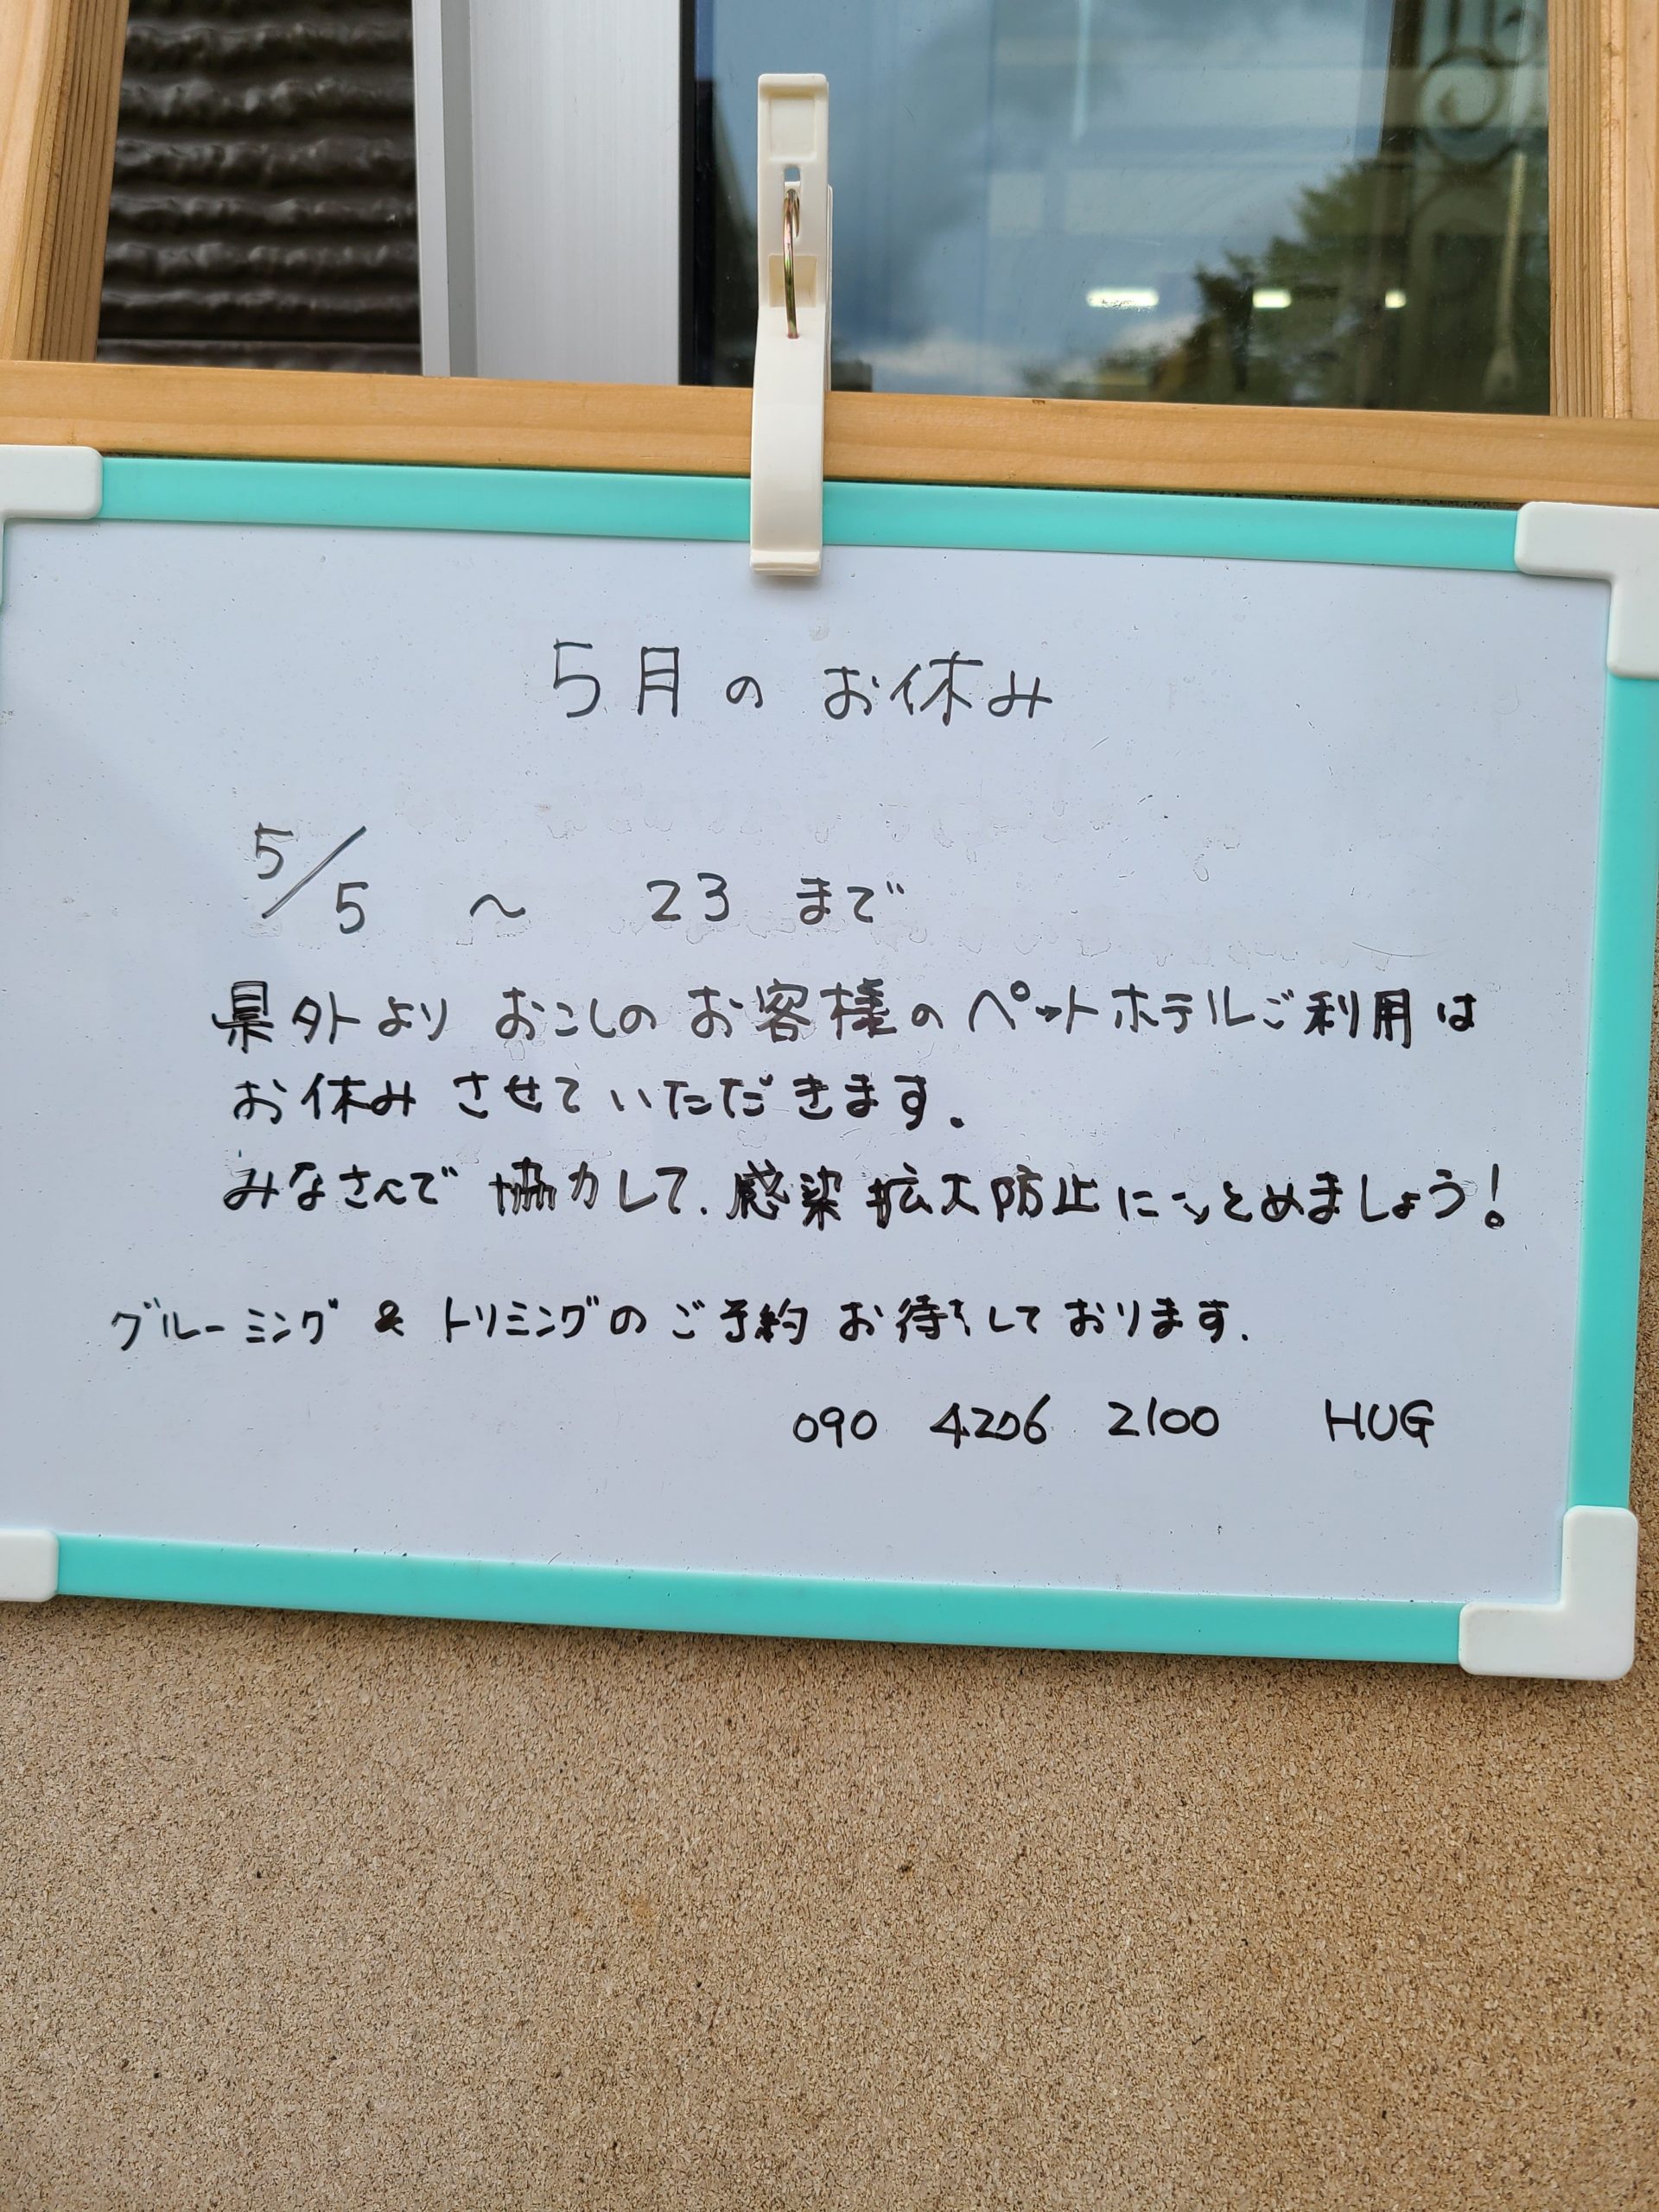 5月の お休み
5/5 〜 23 まで
県外より おこしの お客様の ペットホテルご利用は
お休み させていただきます.
みなさんで 協力して.感染拡大防止につとめましょう!
グルーミング & トリミングの ご予約 お待ちしております.
090 4206 2100 HUG